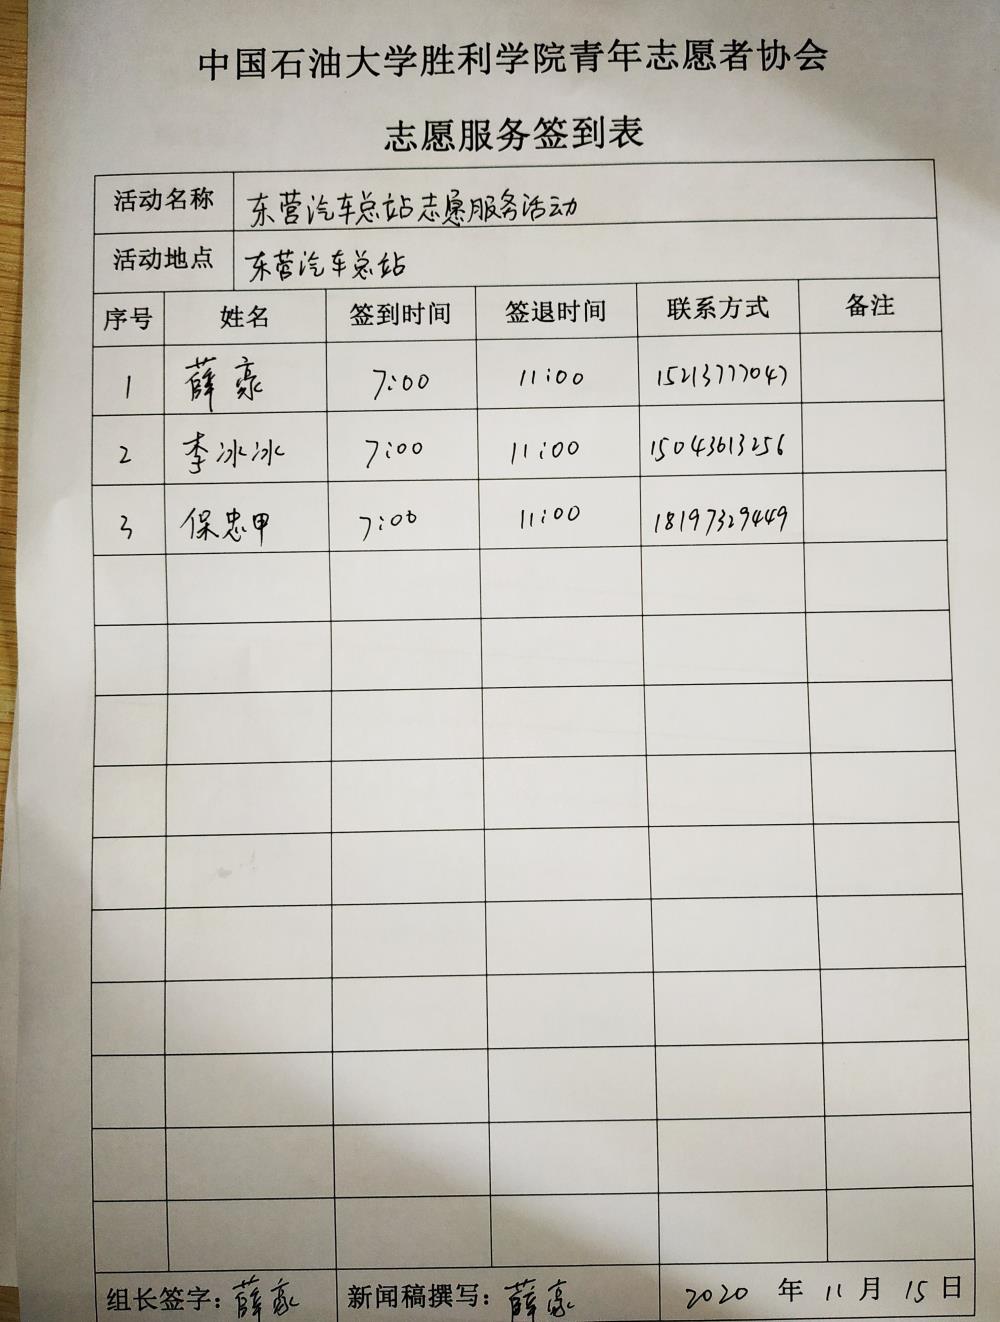 中国石油大学胜利学院青年志愿者协会
志愿服务签到表
活动名称 东营汽车总站志愿服务活动
活动地点 东营汽车总站
序号 姓名 签到时间 签退时间 联系方式 备注
1 薛豪 7:00 11:00 15213777047
2 李冰冰 7:00 11:00 15043613256
3 保忠甲 7:00 11:00 18197329449
组长签字:薛豪 新闻稿撰写:薛豪 2020 年 11 月 15 日